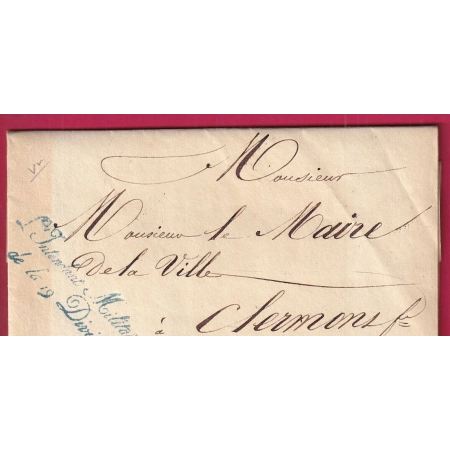 Monsieur
Monsieur le Maire
De la Ville
à Clermons fr
L'Intendant Milita
de la 19 Divi